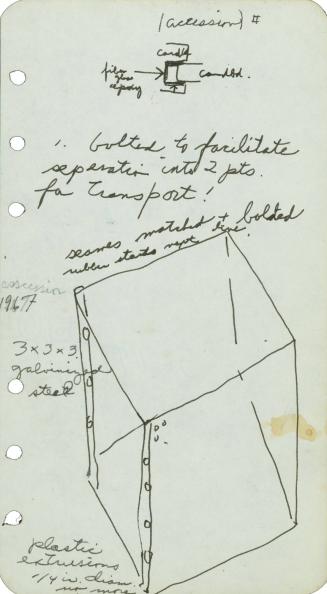 (accession) II
cardb
fiber
glass
epoxy
cardbd.
1. bolted to facilitate
seperation into 2 pts.
for transport!
seams matched + bolted
rubber starts next line.
accession
1967
3 x 3 x 3.
galvinized
steel
plastic
extrusions
1/4 in. diam.
no more